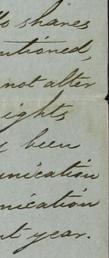 shares
tioned,
not alter
ights
been
unication
nication
t year.